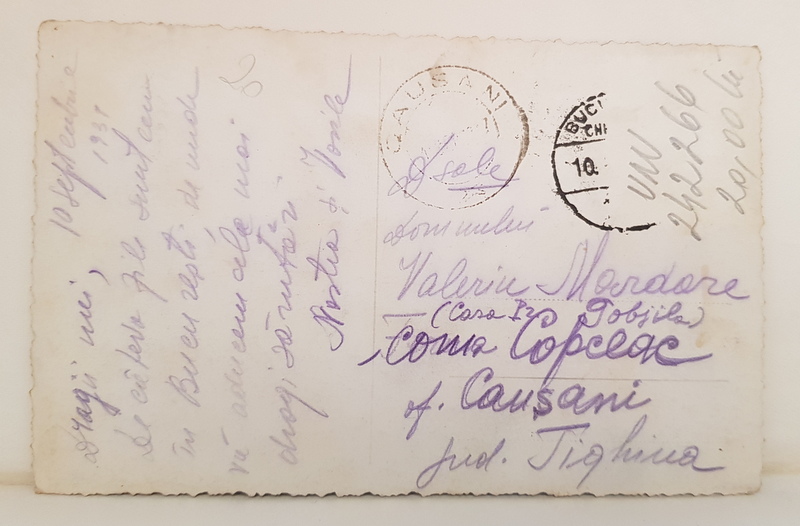 10 septembrie
193
Dragii mei,
De câteva zile suntem
în Bucureşti de unde
vă aducem cele mai
dragi sărutări
Nastia şi Vasile
CAUSANI
BUCU
CHI
10.
242266
20,00 lei
D sale
Domnului
Valeriu Mardare
(Casa
Coma Copceac
of. Causani
jud. Tighina